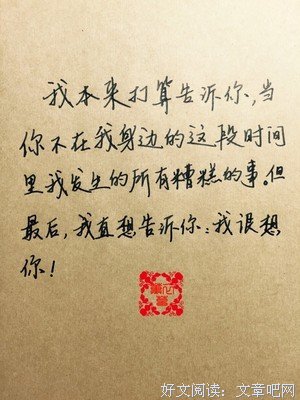 我本来打算告诉你,当
你不在我身边的这段时间
里我发生的所有糟糕的事。但
最后,我直想告诉你:我很想
你!
好文阅读:文章吧网